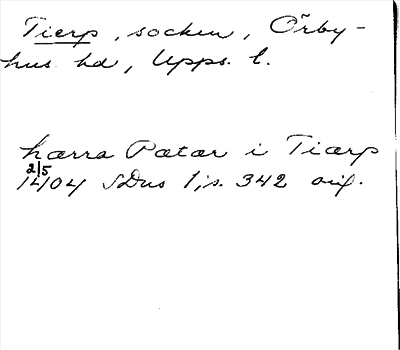 Tierp, socken, Örby-
hus hd, Upps. l.
hærra Pætær i Tiærp
2/5 1404 SDns 1, s. 342 orig.